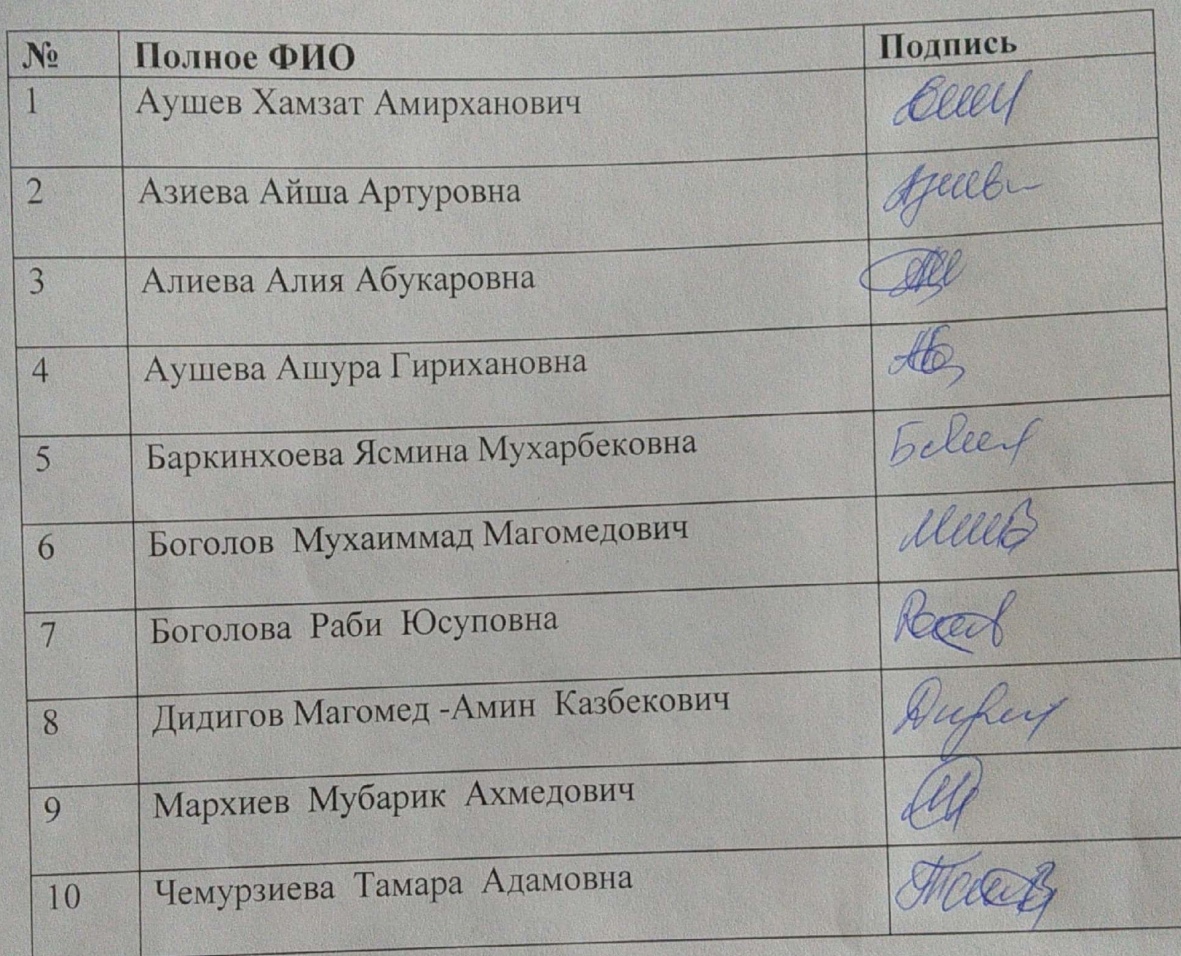 № Полное ФИО Подпись
1 Аушев Хамзат Амирханович
2 Азиева Айша Артуровна
3 Алиева Алия Абукаровна
4 Аушева Ашура Гирихановна
5 Баркинхоева Ясмина Мухарбековна
6 Боголов Мухаиммад Магомедович
7 Боголова Раби Юсуповна
8 Дидигов Магомед -Амин Казбекович
9 Мархиев Мубарик Ахмедович
10 Чемурзиева Тамара Адамовна